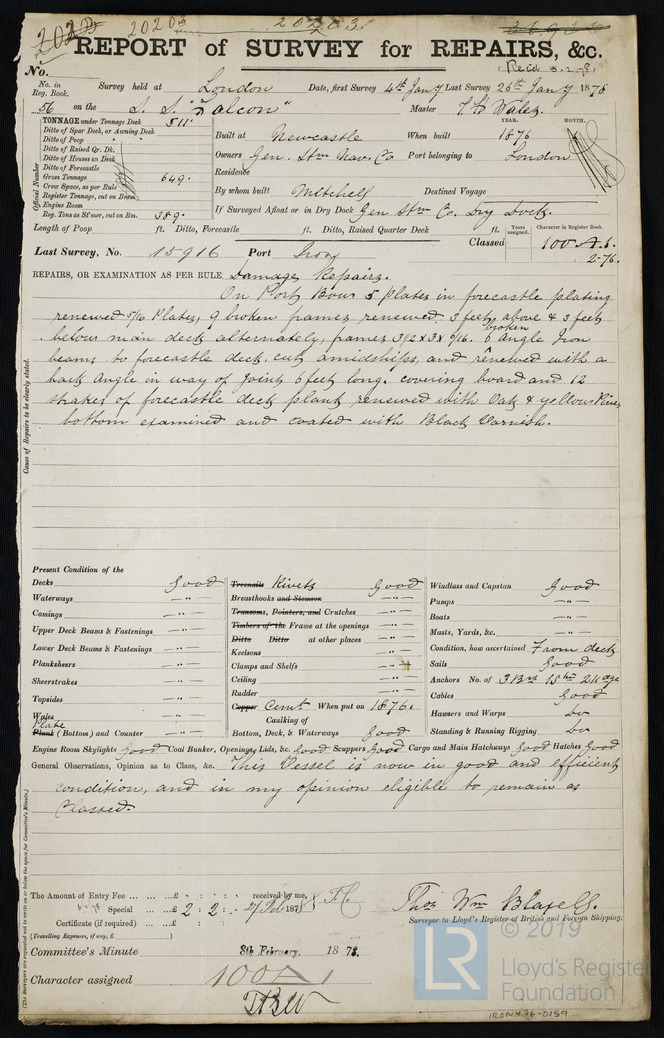 20203
20203
REPORT of SURVEY for REPAIRS, &c.
(Rec'd 5.2.78)
No.
No. in Reg. Book. Survey held at London Date, first Survey 4th Jany Last Survey 26th Jany 1878
56 on the S.S. "Falcon" Master
TONNAGE under Tonnage Deck 511
Ditto of Spar Deck, or Awning Deck
Ditto of Poop
Ditto of Raised Qr. Dk.
Ditto of Houses on Deck
Ditto of Forecastle
Gross Tonnage 649.
Crew Space, as per Rule
Register Tonnage, cut on Beam
Engine Room
Reg. Tons as St'mer, cut on Bm. 389.
Official Number
YEAR. MONTH.
Built at Newcastle When built 1876
Owners Gen. Stm Nav. Co Port belonging to London
Residence
By whom built Mitchell Destined Voyage
If Surveyed Afloat or in Dry Dock Gen Stm Co. Dry Dock.
Length of Poop ft. Ditto, Forecastle ft. Ditto, Raised Quarter Deck ft.
Years assigned. Character in Register Book.
Classed 100 A.1.
2-76.
Last Survey, No. 15916 Port Iron
REPAIRS, OR EXAMINATION AS PER RULE Damage Repairs.
On Port Bow 5 plates in forecastle plating
renewed 5/16 Plates, 9 broken frames renewed 3 feet above & 3 feet
below main deck alternately, frames 3 1/2 x 3 x 6/16. 6 broken Angle Iron
beams to forecastle deck, cut amidships, and renewed with a
back Angle in way of joint 6 feet long. covering board and 12
strakes of forecastle deck plank renewed with Oak & yellow Pine,
bottom examined and coated with Black Varnish.
Cause of Repairs to be clearly stated.
Present Condition of the
Decks Good
Waterways — " —
Comings — " —
Upper Deck Beams & Fastenings — " —
Lower Deck Beams & Fastenings — " —
Planksheers — " —
Sheerstrakes — " —
Topsides — " —
Wales
Plate
Plank (Bottom) and Counter — " —
Treenails Rivets Good
Breasthooks and Stemson — " —
Transoms, Pointers, and Crutches — " —
Timbers of the Frame at the openings — " —
Ditto Ditto at other places — " —
Keelsons — " —
Clamps and Shelfs — " —
Ceiling — " —
Rudder — " —
Copper Cemt When put on 1876.
Caulking of
Bottom, Deck, & Waterways Good
Windlass and Capstan Good
Pumps — " —
Boats — " —
Masts, Yards, &c. — " —
Condition, how ascertained From deck
Sails Good
Anchors No. of 3 Brs 1 Stm 2 Kedge
Cables Good
Hawsers and Warps Do
Standing & Running Rigging Do
Engine Room Skylights Good Coal Bunker, Openings, Lids, &c. Good Scuppers Good Cargo and Main Hatchways Good Hatches Good
General Observations, Opinion as to Class, &c. This Vessel is now in good and efficient
condition, and in my opinion eligible to remain as
Classed.
(The Surveyors are requested not to write on or below the space for Committee's Minute.)
The Amount of Entry Fee ... ... £ : : received by me,
Special ... ... £ 2 : 2 : 2/Feb 1878
Certificate (if required) ... £ : :
(Travelling Expenses, if any, £ )
Thos Wm Blaxell.
Surveyor to Lloyd's Register of British and Foreign Shipping.
Committee's Minute 8th February, 1878.
Character assigned 100 A 1
© 2019
LR
Lloyd's Register
Foundation
IRON476-0159